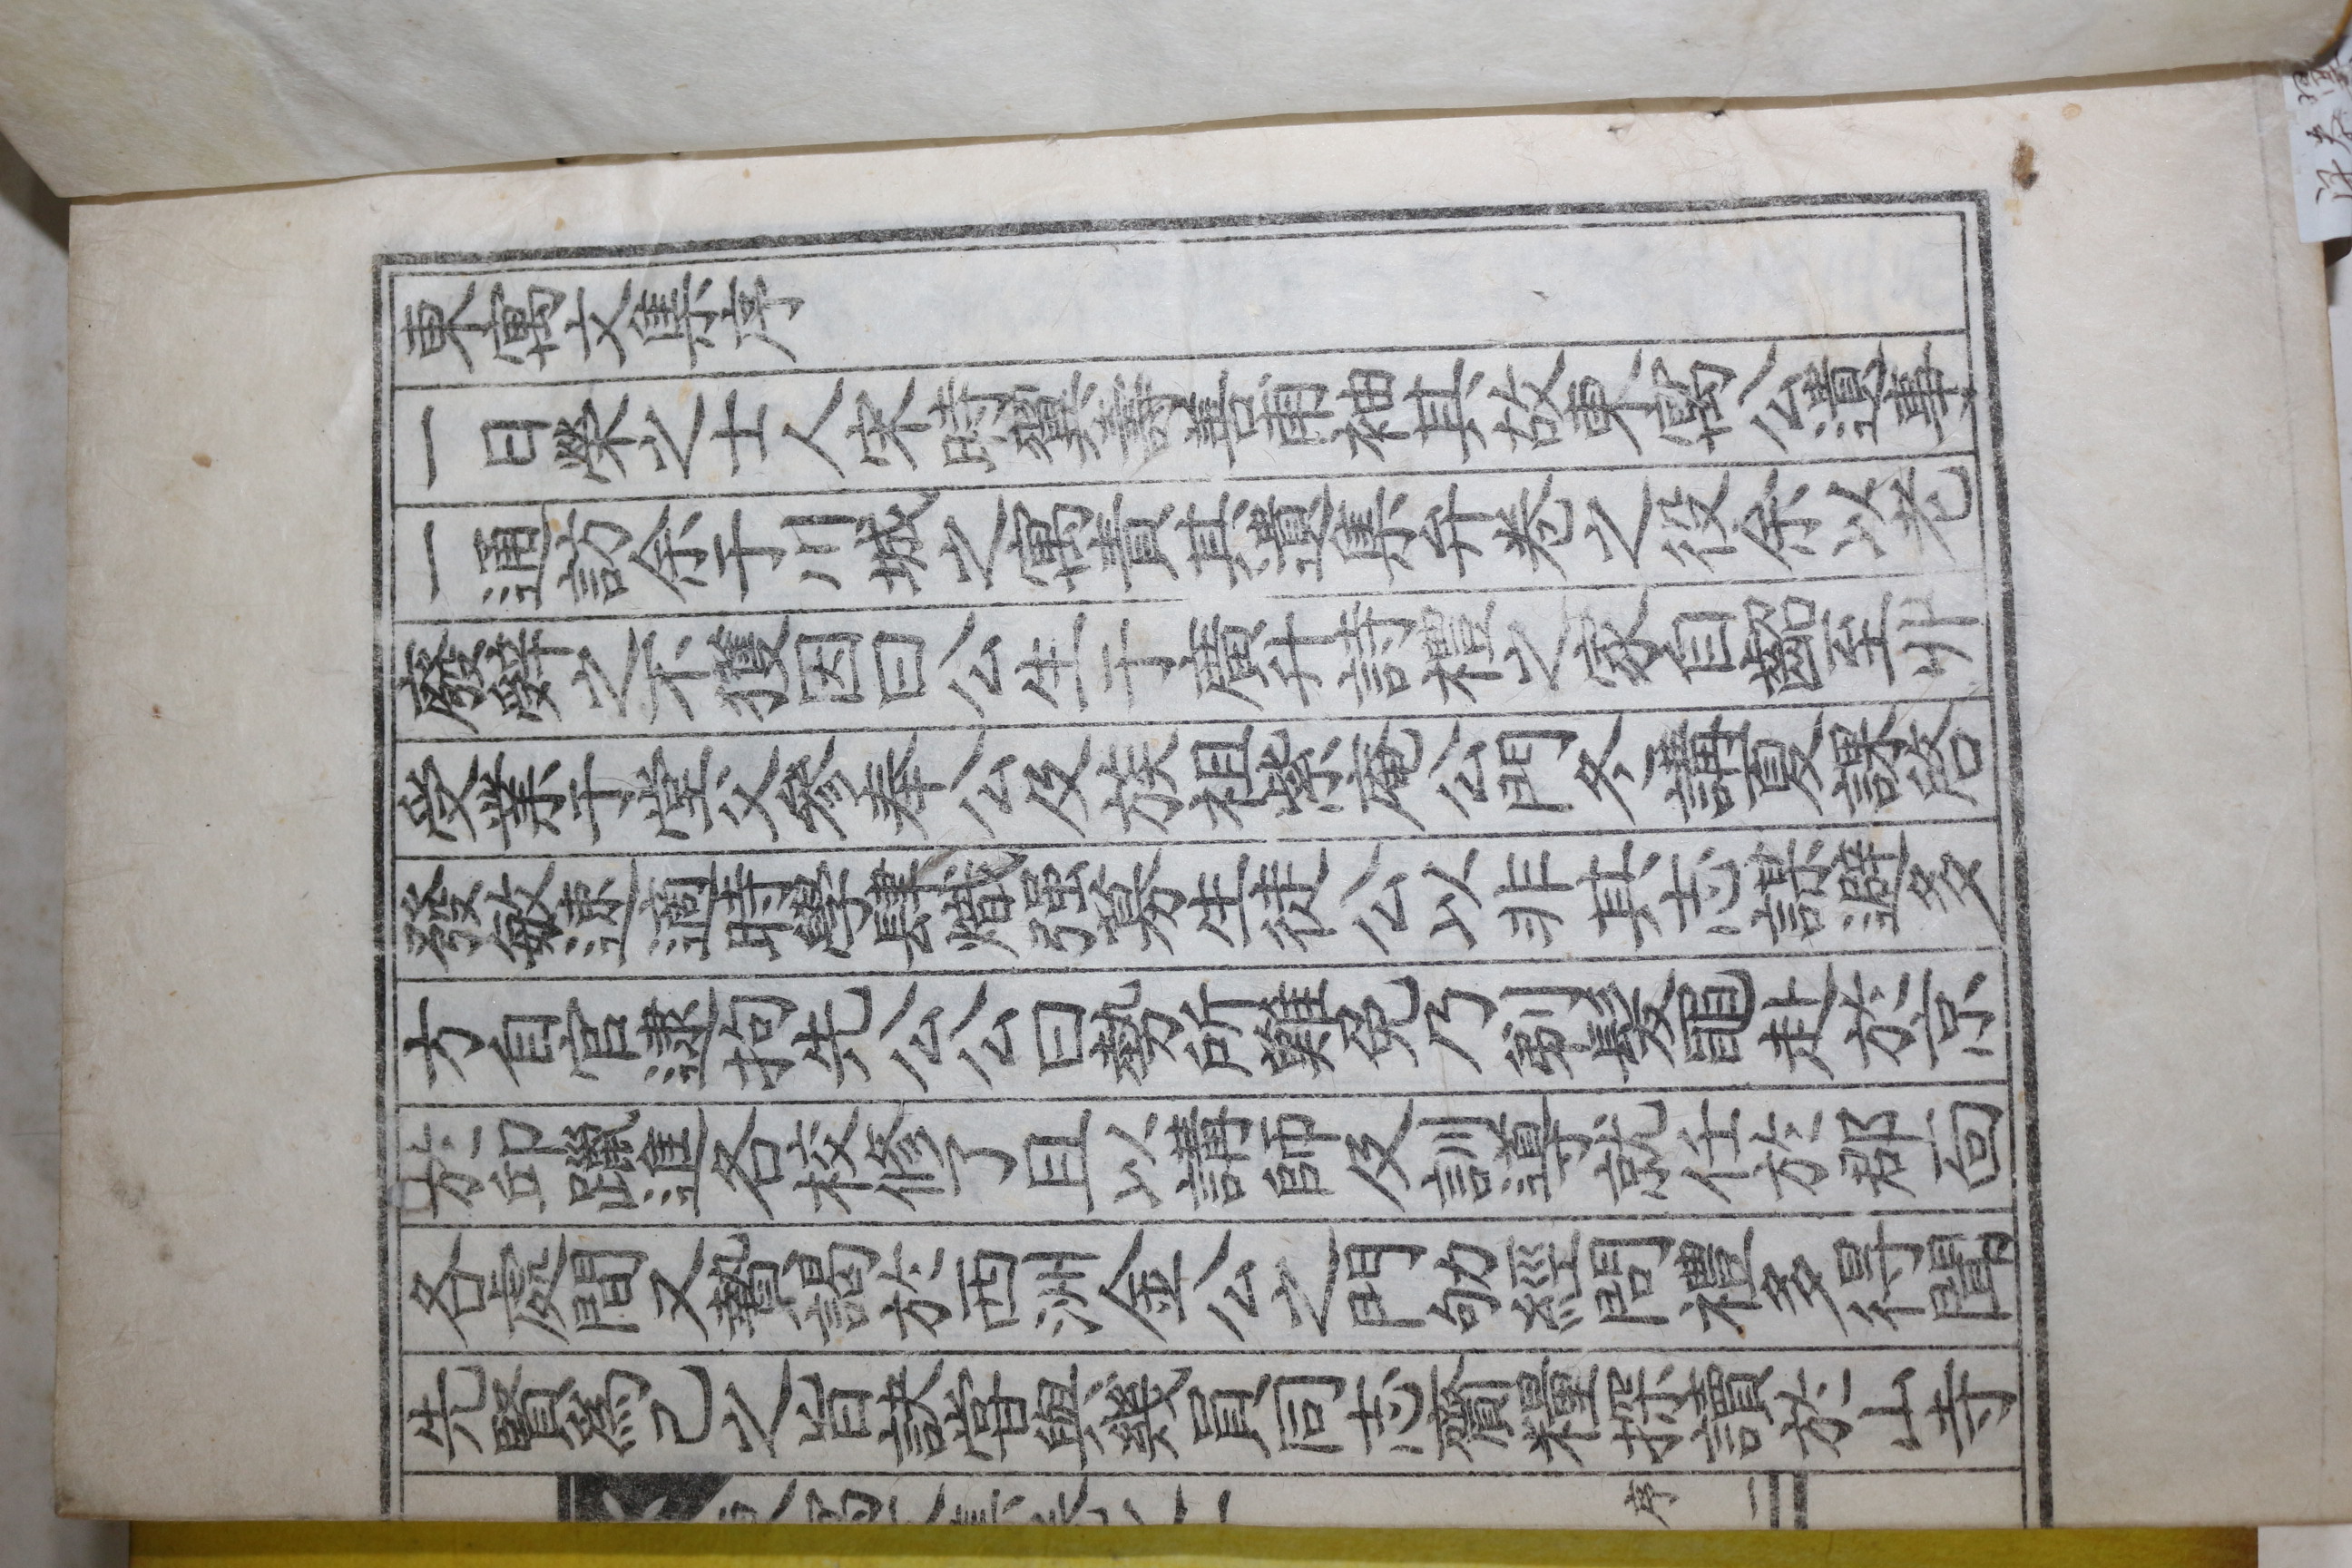 東寓文集序
一日榮之士人宋時翼壽善甫袖其故東寓公遺事
一通訪余于川城之寓責其遺集弁卷之役余以老
廢辭之不獲因曰公生于廣升詩禮之家自齠至丱
受業于堂父參奉公及族祖紫庵公門冬講夏課啓
發敏速適時學肆熾强募生徒公以非其志謀避多
方自官逮拘先公公曰勢所難免乃剃髮黽赴於京
於卬躐進各校修了且以講師及訓導就任於郡面
各處間又贄謁於西洲金公之門劬經問禮多得聞
先賢爲己之旨訣嘗與幾員同志齎糧探讀於山寺
序